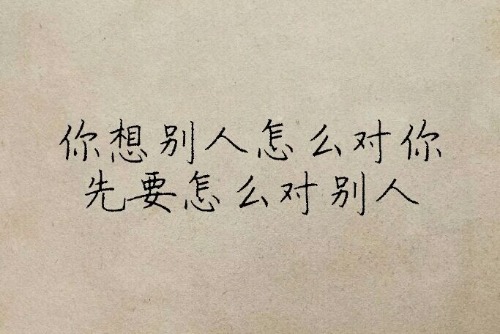 你想别人怎么对你
先要怎么对别人